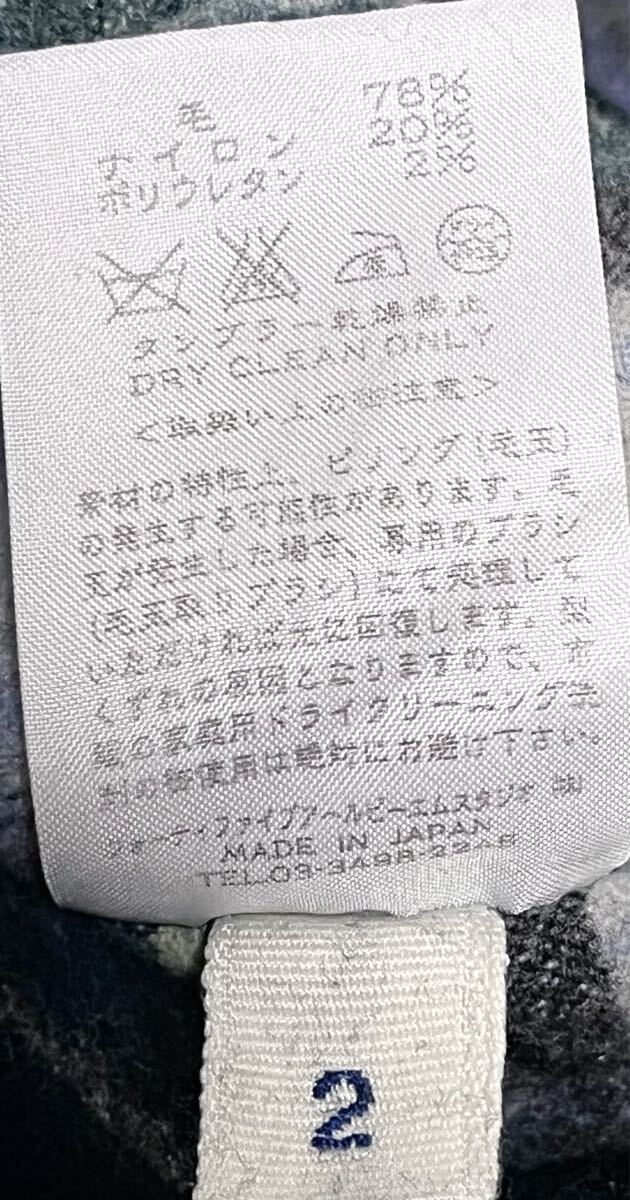 毛 78%
ナイロン 20%
ポリウレタン 2%
タンブラー乾燥禁止
DRY CLEAN ONLY
<取扱い上の御注意>
素材の特性上、ピリング(毛玉)
の発生する可能性があります。毛
玉が発生した場合、専用のブラシ
(毛玉取りブラシ)にて処理して
いただければ元に回復します。型
くずれの原因となりますので、市
販の家庭用ドライクリーニング洗
剤の御使用は絶対にお避け下さい。
フォーティ・ファイブアールピーエムスタジオ ㈱
MADE IN JAPAN
TEL.03-3498-2248
2